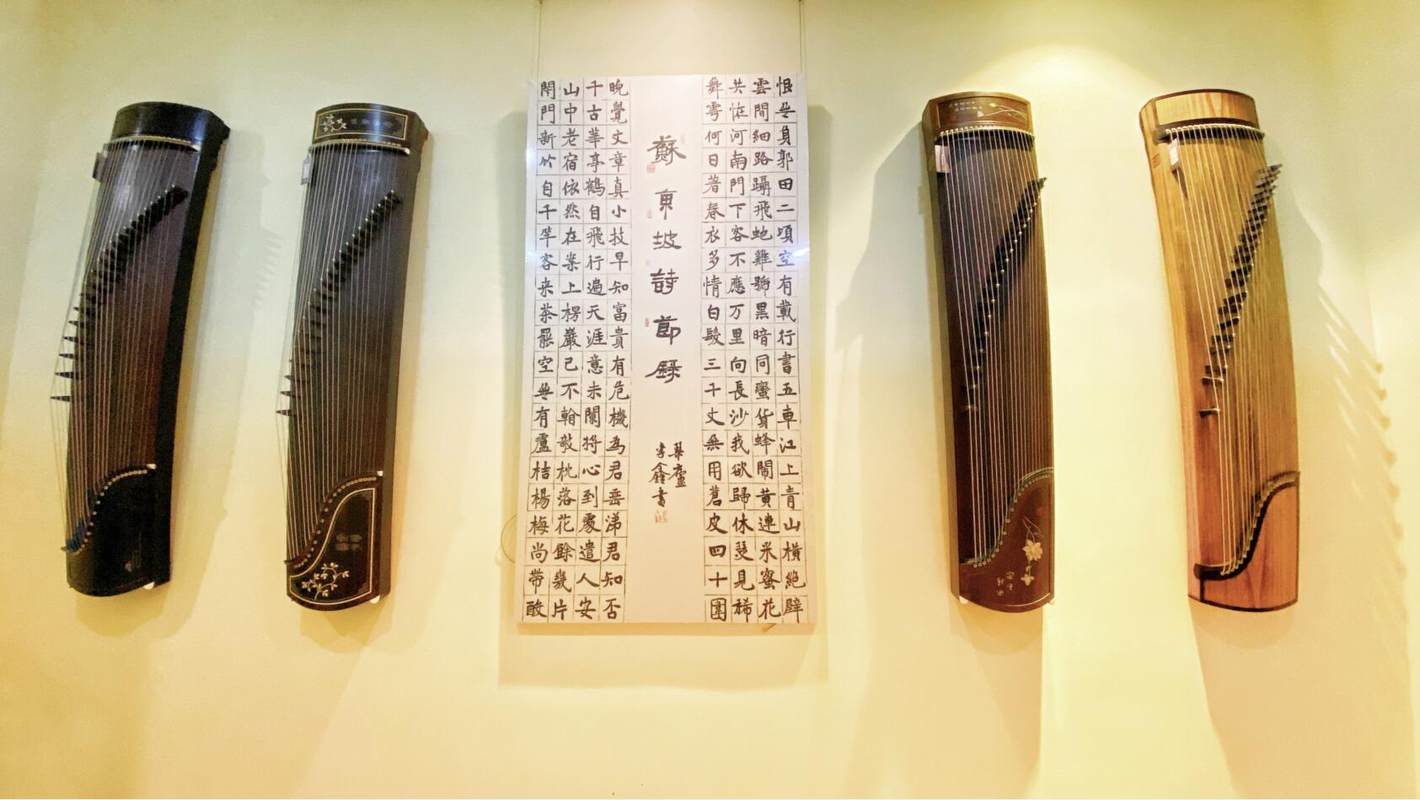 恨無負郭田二頃空有載行書五車江上青山橫絕壁
雲間細路躡飛虵雞號黑暗同蜜貨蜂鬧黃連采蜜花
共怪河南門下客不應万里向長沙我欲歸休瑟見稀
舞雩何日著春衣多情白髮三千丈無用蒼皮四十圍
蘇東坡詩節錄
華廬
李鑫書
晚覺文章真小技早知富貴有危機為君垂涕君知否
千古華亭鶴自飛行遍天涯意未闌將心到處遣人安
山中老宿依然在案上楞嚴已不翰敧枕落花餘幾片
閉門新竹自千竿客來茶罷空無有盧桔楊梅尚帶酸